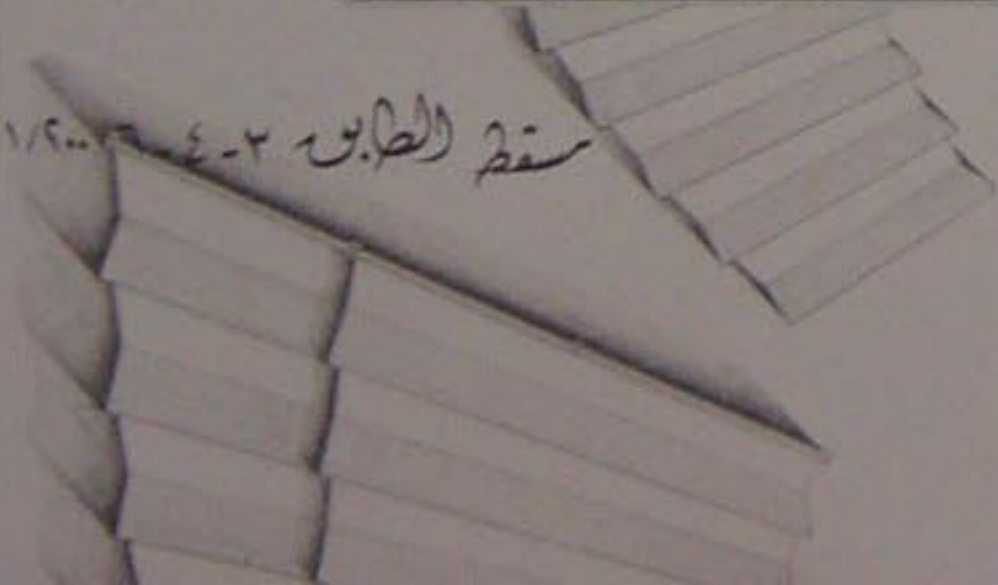 مسقط الطابق ٣-٤-٦ ١/٢٠٠